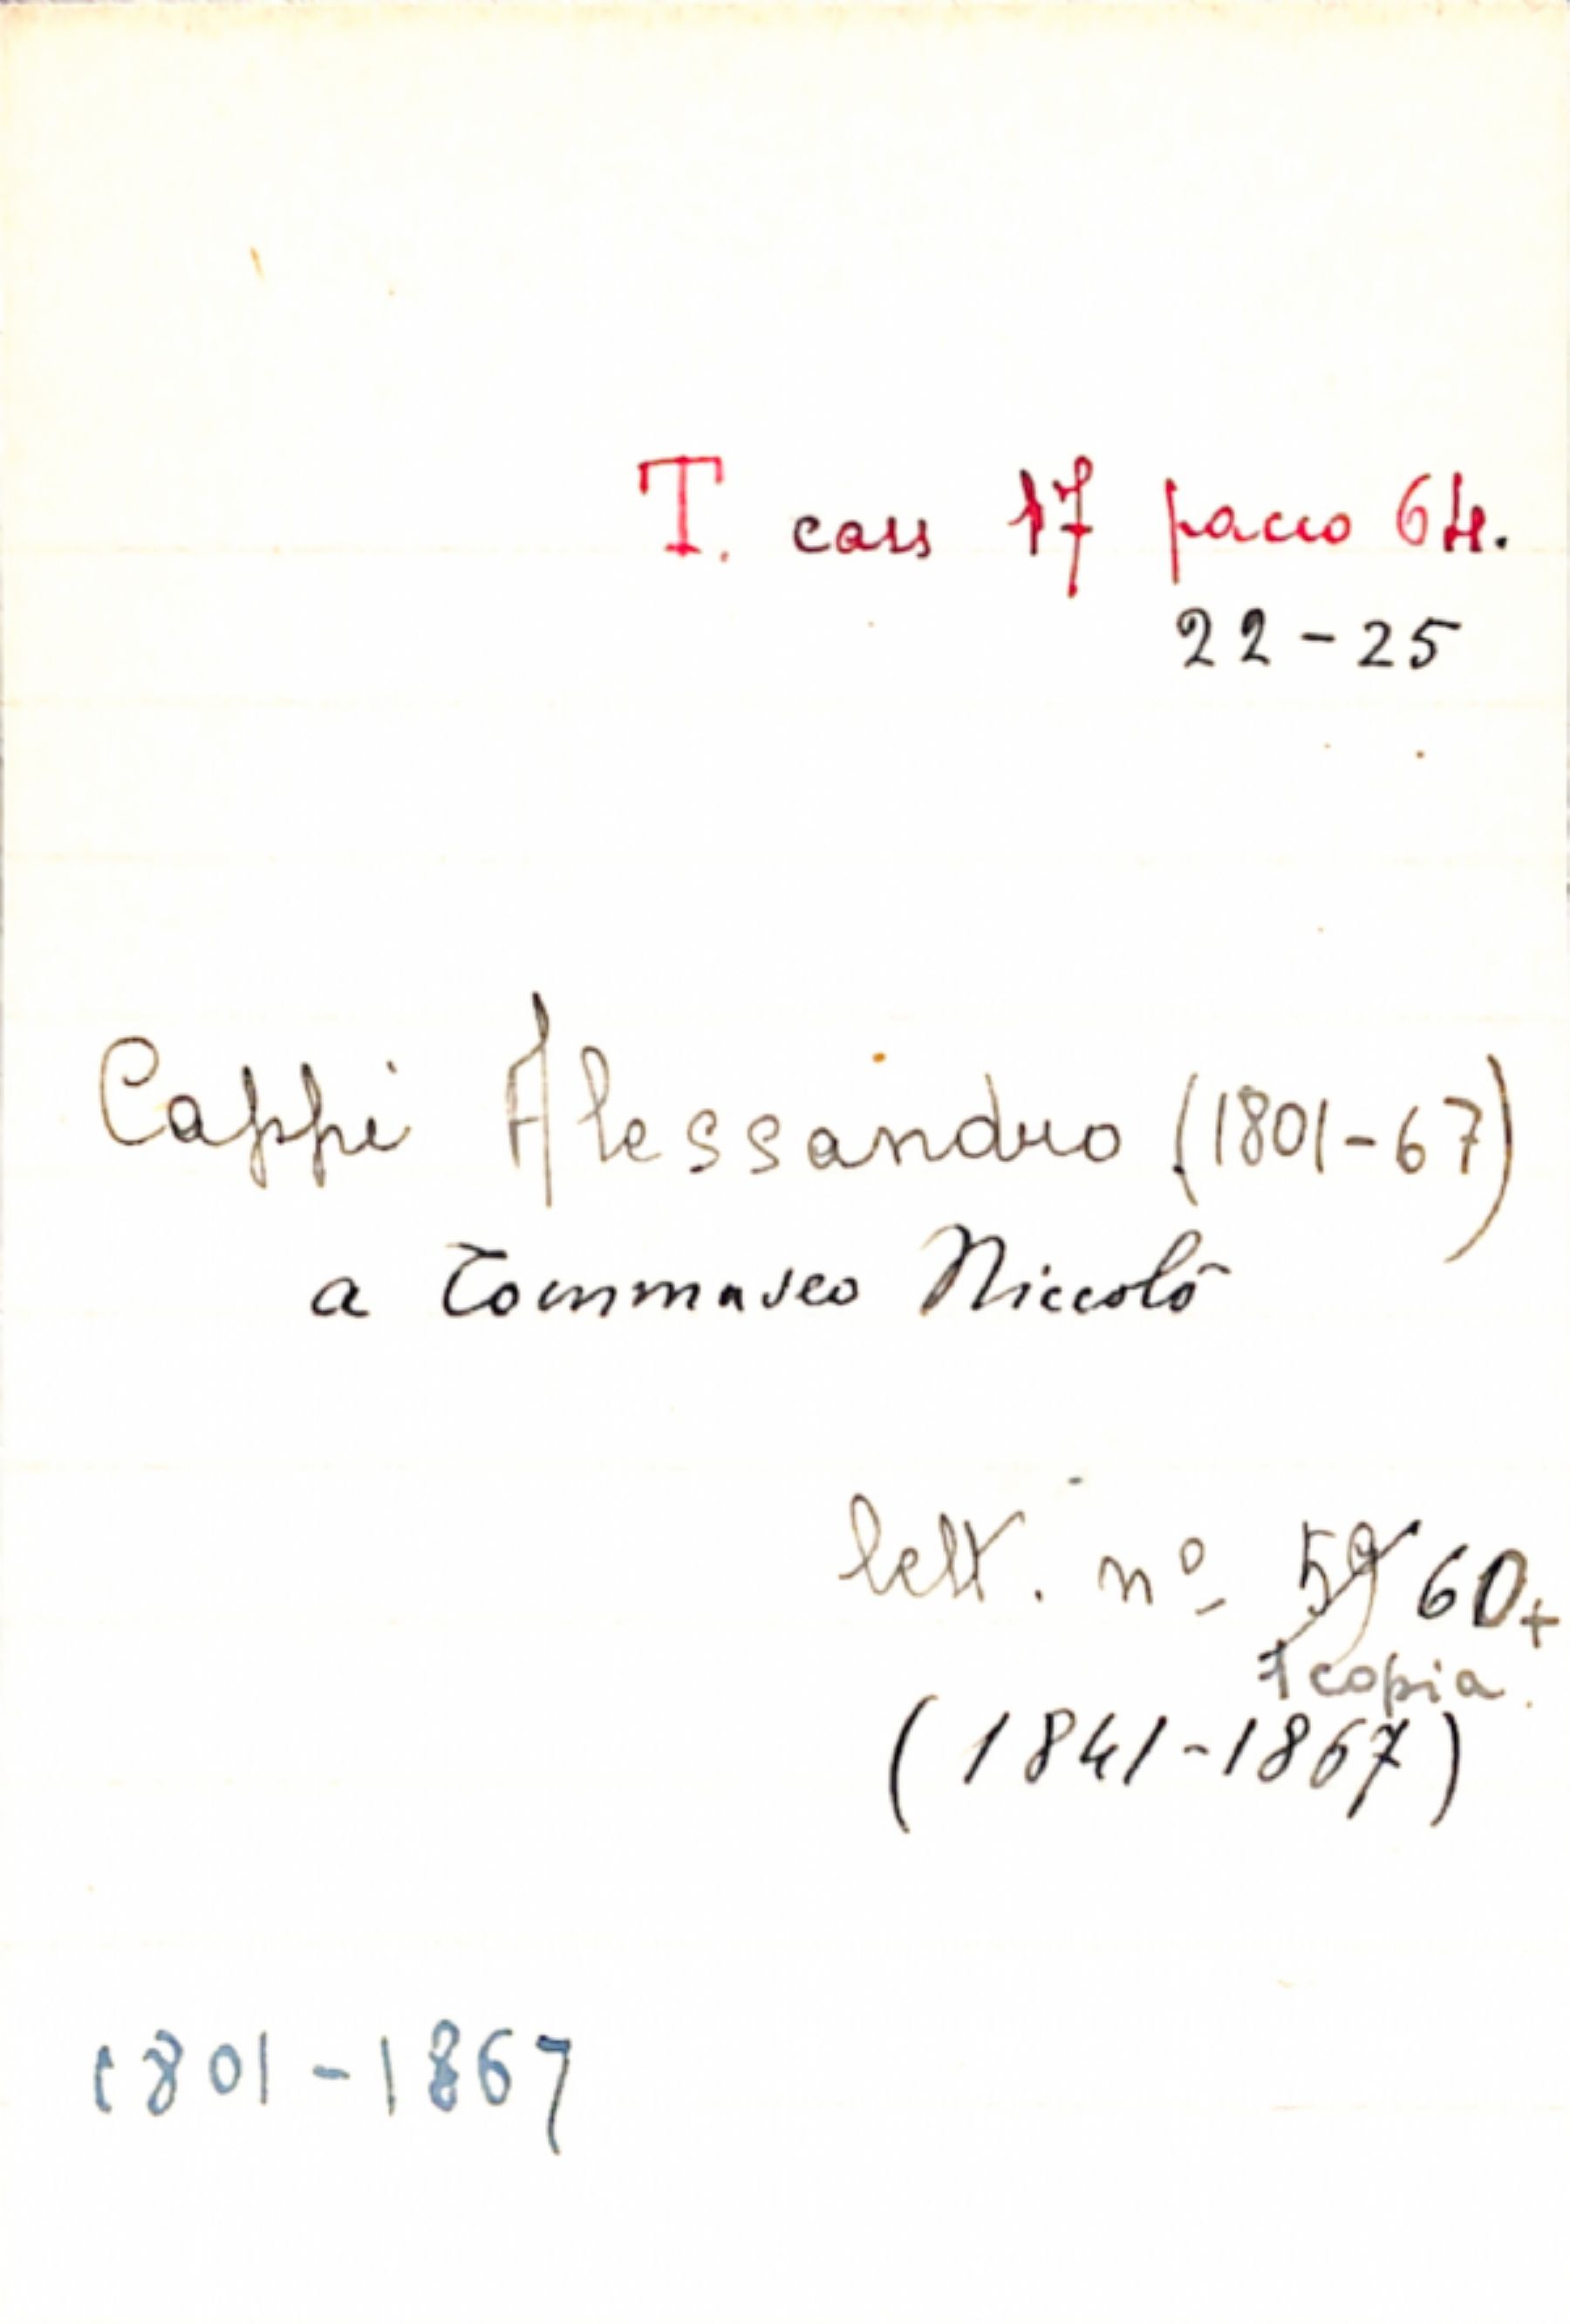 T. cass 17 pacco 64.
22-25
Cappi Alessandro (1801-67)
a Tommaseo Niccolò
lett. nº 59 60+
1 copia.
(1841-1867)
1801-1867